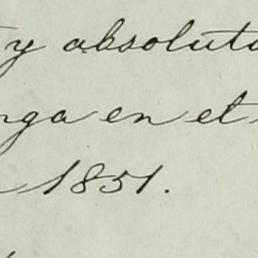 y absoluta
nga en el
1851.